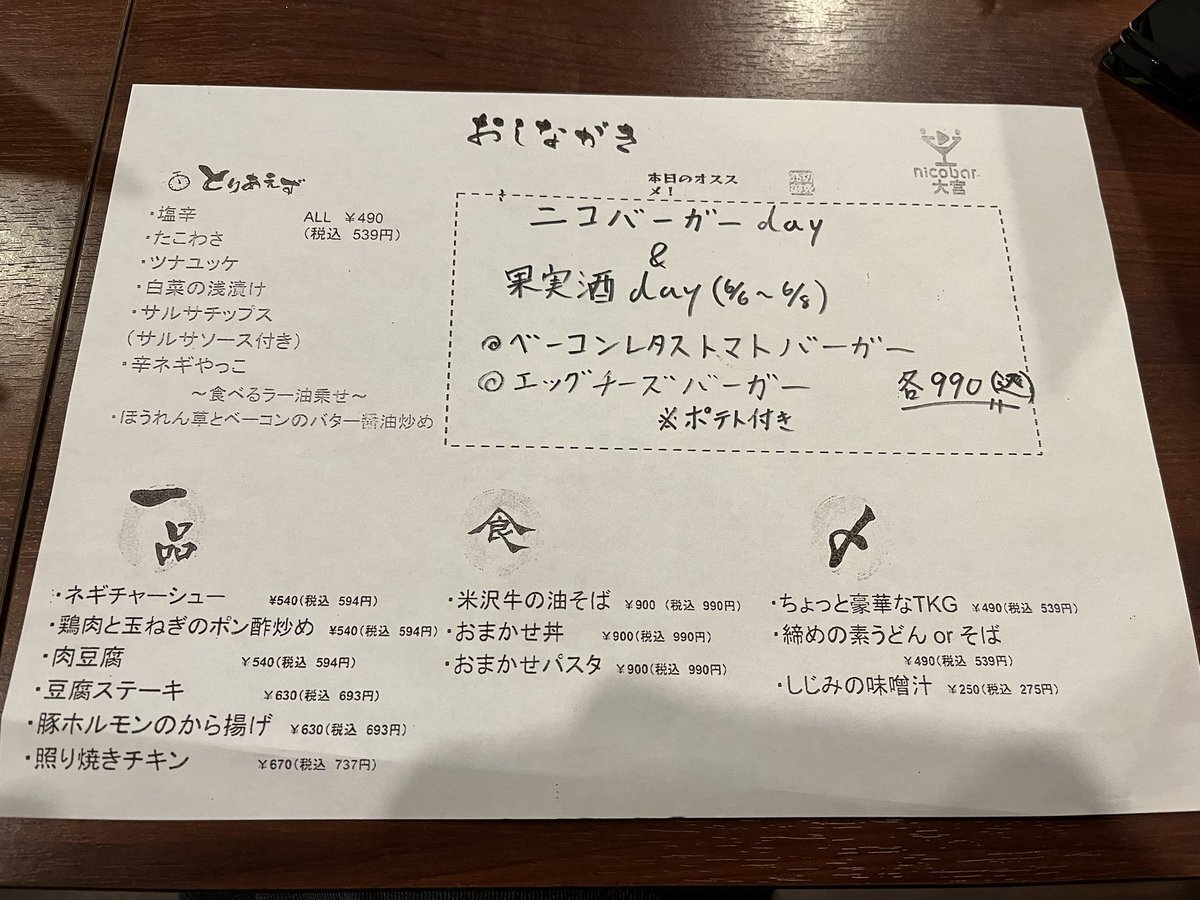 おしながき
nicobar
大宮
とりあえず
・塩辛 ALL ￥490
(税込 539円)
・たこわさ
・ツナユッケ
・白菜の浅漬け
・サルサチップス
(サルサソース付き)
・辛ネギやっこ
～食べるラー油乗せ～
・ほうれん草とベーコンのバター醤油炒め
本日のオスス
メ!
ニコバーガーday
&
果実酒day(6/6～6/8)
◎ベーコンレタストマトバーガー
◎エッグチーズバーガー 各990(込)
※ポテト付き
一品
・ネギチャーシュー ¥540(税込 594円)
・鶏肉と玉ねぎのポン酢炒め ¥540(税込 594円)
・肉豆腐 ￥540(税込 594円)
・豆腐ステーキ ￥630(税込 693円)
・豚ホルモンのから揚げ ￥630(税込 693円)
・照り焼きチキン ￥670(税込 737円)
食
・米沢牛の油そば ￥900 (税込 990円)
・おまかせ丼 ￥900(税込 990円)
・おまかせパスタ ￥900(税込 990円)
〆
・ちょっと豪華なTKG ￥490(税込 539円)
・締めの素うどん or そば
￥490(税込 539円)
・しじみの味噌汁 ￥250(税込 275円)